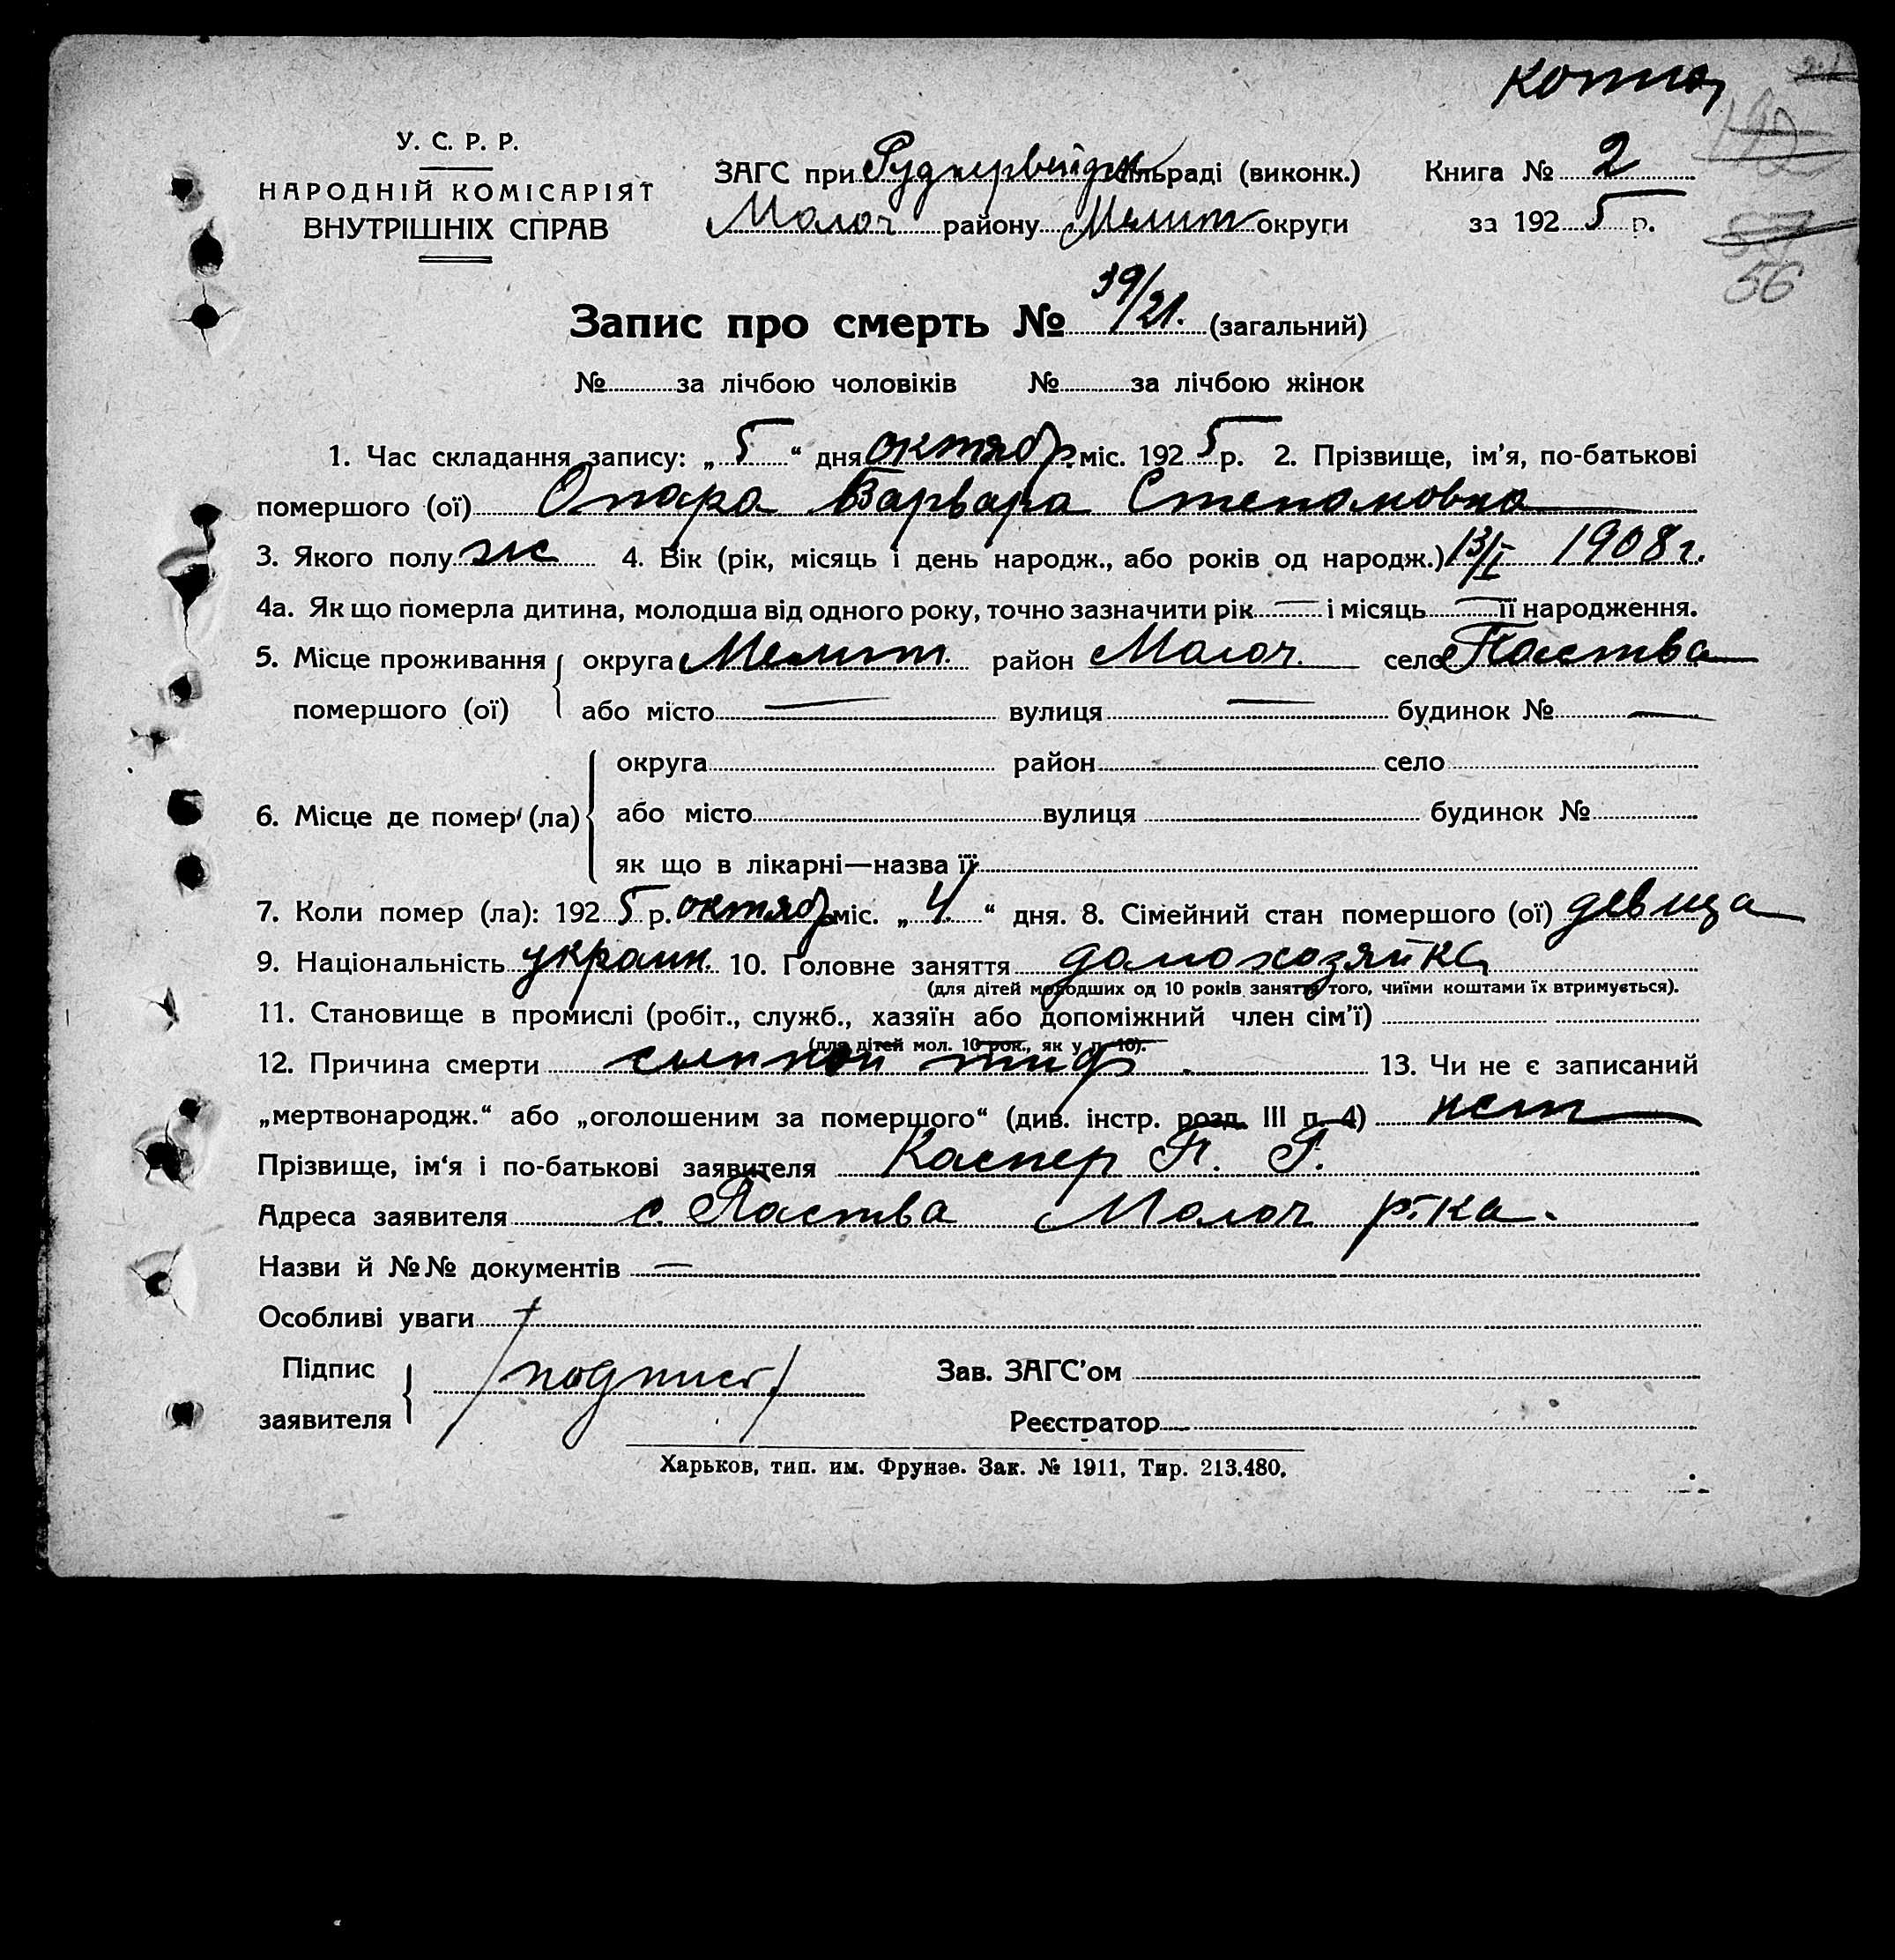 копия
У. С. Р. Р.
НАРОДНІЙ КОМІСАРІЯТ
ВНУТРІШНІХ СПРАВ
ЗАГС при Руднервейдск сільраді (виконк.)
Молоч району Мелит округи
Книга № 2
за 1925 р.
56
Запис про смерть № 39/21. (загальний)
№ за лічбою чоловіків № за лічбою жінок
1. Час складання запису: „5“ дня октябр. міс. 1925 р. 2. Прізвище, ім’я, по-батькові
помершого (ої) Опара Варвара Степановна
3. Якого полу ж 4. Вік (рік, місяць і день народж., або років од народж.) 13/I 1908 г.
4а. Як що померла дитина, молодша від одного року, точно зазначити рік — і місяць — її народження.
5. Місце проживання помершого (ої) округа Мелит. район Молоч. село Паства
або місто — вулиця — будинок № —
6. Місце де помер (ла) округа район село
або місто вулиця будинок №
як що в лікарні—назва її
7. Коли помер (ла): 1925 р. октябр міс. „4.“ дня. 8. Сімейний стан помершого (ої) девица
9. Національність украин. 10. Головне заняття домохозяйка
(для дітей молодших од 10 років заняття того, чиїми коштами їх втримується).
11. Становище в промислі (робіт., служб., хазяїн або допоміжний член сім’ї)
(для дітей мол. 10 рок., як у п. 10).
12. Причина смерти сыпной тиф. 13. Чи не є записаний
„мертвонародж.“ або „оголошеним за помершого“ (див. інстр. розд. III п. 4) нет
Прізвище, ім‘я і по-батькові заявителя Каспер П. Г.
Адреса заявителя с. Паства Молоч р-ка.
Назви й №№ документів —
Особливі уваги
Підпис заявителя /подпись/
Зав. ЗАГС’ом
Реєстратор
Харьков, тип. им. Фрунзе. Зак. № 1911, Тир. 213.480.